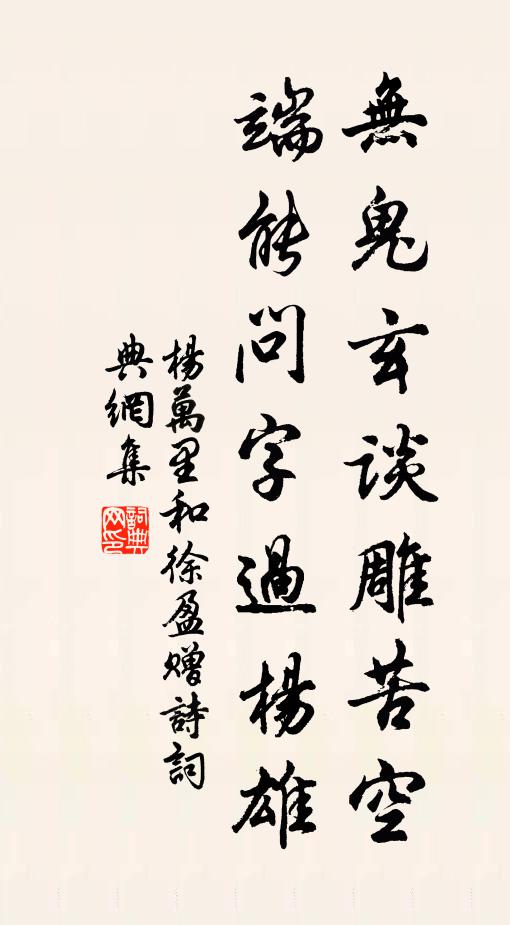 無鬼玄談雕苦空
端能問字過楊雄
楊萬里和徐盈贈詩詞
典網集
詞典
网印